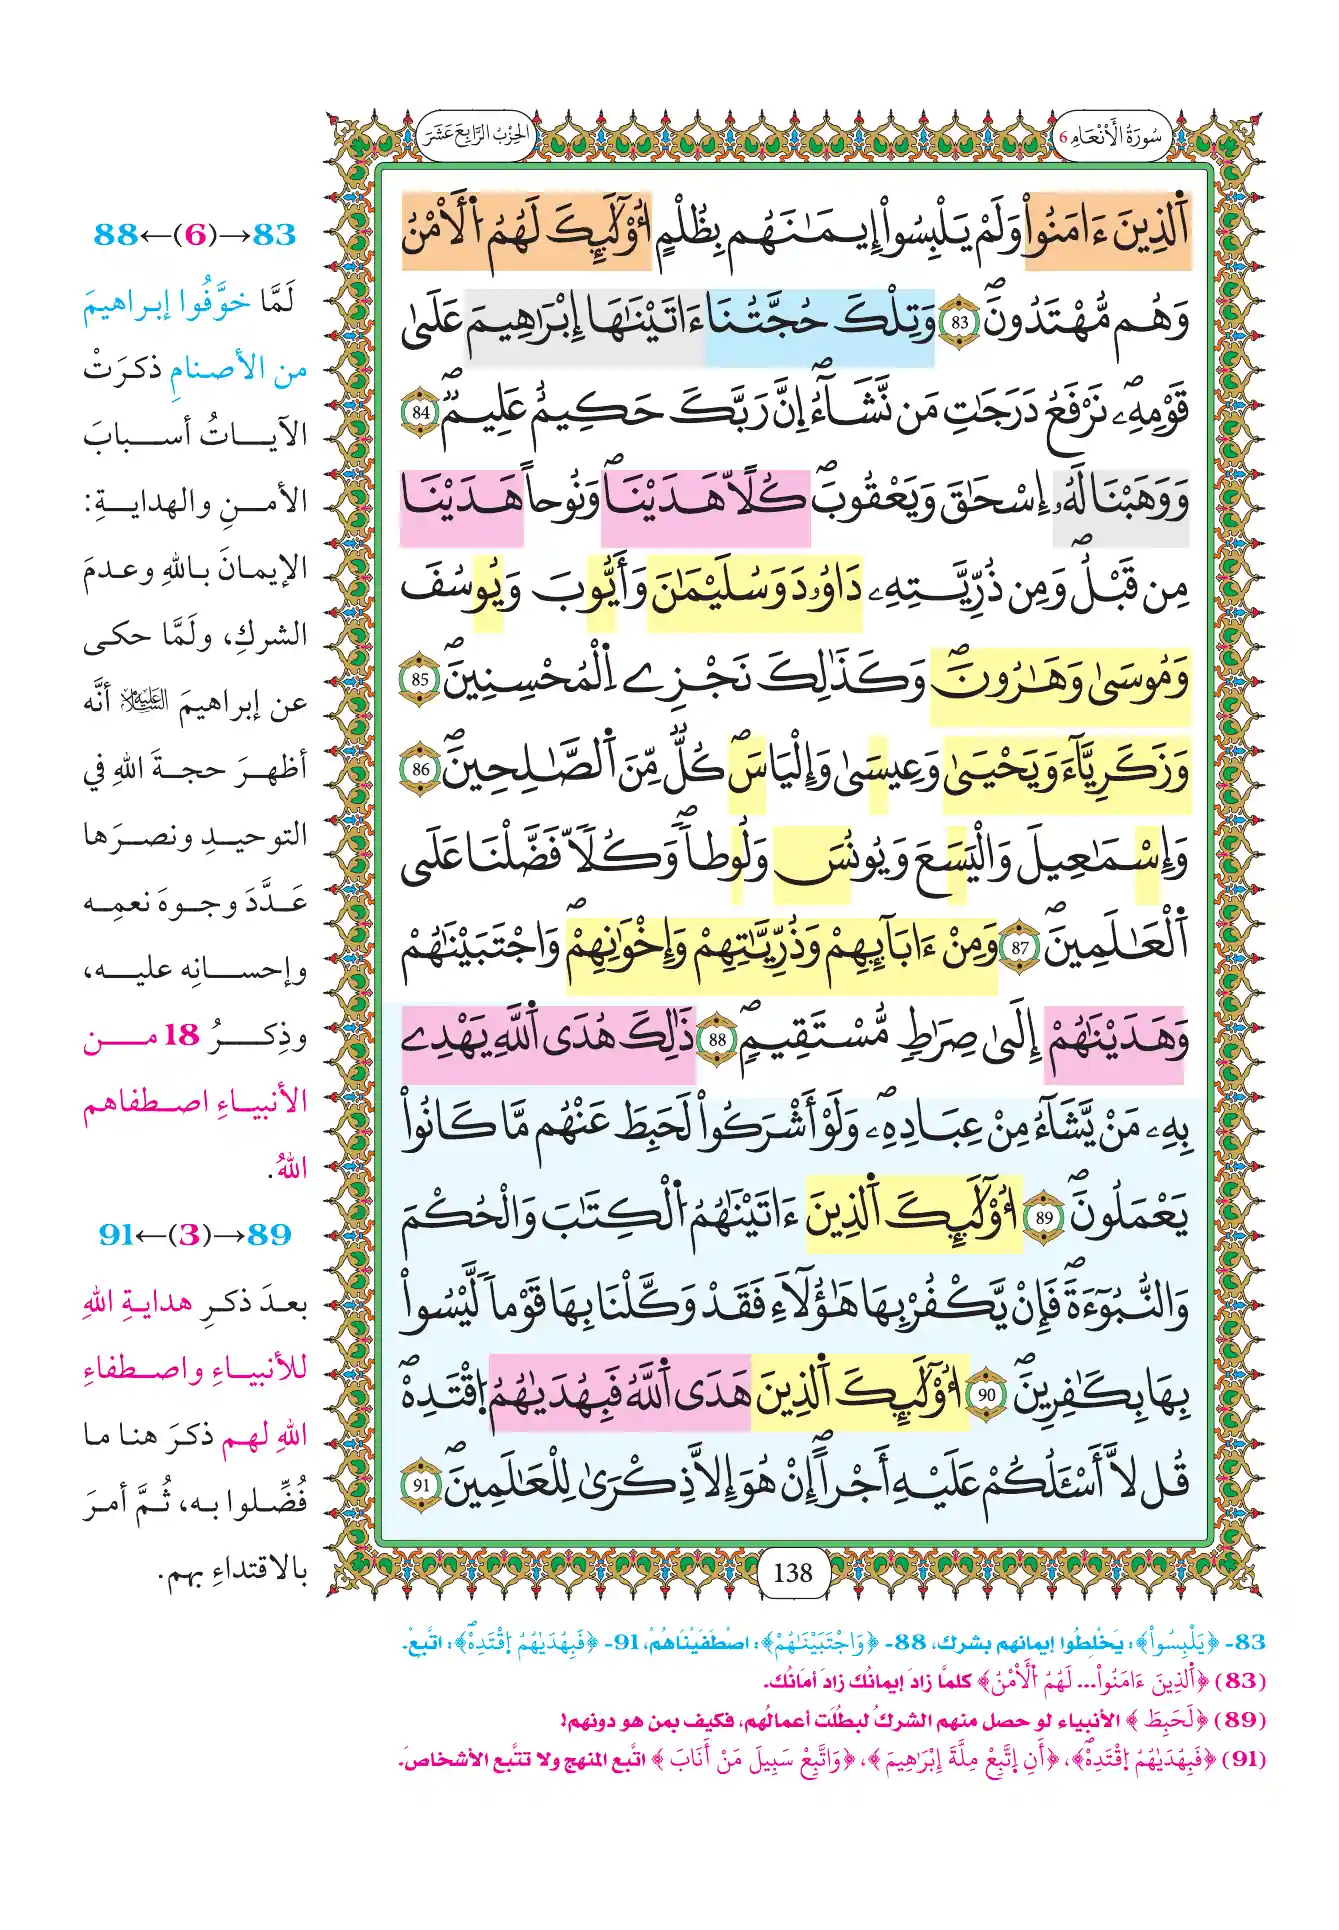 سُورَةُ الأَنْعَامِ 6
الحِزْبُ الرَّابِعَ عَشَرَ
اَ۬لذِينَ ءَامَنُواْ وَلَمْ يَلْبِسُواْ إِيمَٰنَهُم بِظُلْمٍ ا۟وْلَٰٓئِكَ لَهُمُ اُ۬لَامْنُ
وَهُم مُّهْتَدُونَۖ 83 وَتِلْكَ حُجَّتُنَا ءَاتَيْنَٰهَا إِبْرَٰهِيمَ عَلَىٰ
قَوْمِهِۦۖ نَرْفَعُ دَرَجَٰتِ مَن نَّشَآءُۖ اِنَّ رَبَّكَ حَكِيمٌ عَلِيمٌۖ 84
وَوَهَبْنَا لَهُۥ إِسْحَٰقَ وَيَعْقُوبَۖ كُلًّا هَدَيْنَاۖ وَنُوحاً هَدَيْنَا
مِن قَبْلُۖ وَمِن ذُرِّيَّتِهِۦ دَاوُۥدَ وَسُلَيْمَٰنَ وَأَيُّوبَ وَيُوسُفَ
وَمُوسَىٰ وَهَٰرُونَۖ وَكَذَٰلِكَ نَجْزِے اِ۬لْمُحْسِنِينَۖ 85
وَزَكَرِيَّآءَ وَيَحْيَىٰ وَعِيسَىٰ وَإِلْيَاسَۖ كُلٌّ مِّنَ اَ۬لصَّٰلِحِينَۖ 86
وَإِسْمَٰعِيلَ وَالْيَسَعَ وَيُونُسَ وَلُوطاًۖ وَكُلًّا فَضَّلْنَا عَلَى
اَ۬لْعَٰلَمِينَۖ 87 وَمِنْ ءَابَآئِهِمْ وَذُرِّيَّٰتِهِمْ وَإِخْوَٰنِهِمْۖ وَاجْتَبَيْنَٰهُمْ
وَهَدَيْنَٰهُمْ إِلَىٰ صِرَٰطٍ مُّسْتَقِيمٍۖ 88 ذَٰلِكَ هُدَى اَ۬للَّهِ يَهْدِے
بِهِۦ مَنْ يَّشَآءُ مِنْ عِبَادِهِۦۖ وَلَوَ اَشْرَكُواْ لَحَبِطَ عَنْهُم مَّا كَانُواْ
يَعْمَلُونَۖ 89 ا۟وْلَٰٓئِكَ اَ۬لذِينَ ءَاتَيْنَٰهُمُ اُ۬لْكِتَٰبَ وَالْحُكْمَ
وَالنُّبُوٓءَةَۖ فَإِنْ يَّكْفُرْ بِهَا هَٰٓؤُلَآءِ فَقَدْ وَكَّلْنَا بِهَا قَوْماً لَّيْسُواْ
بِهَا بِكَٰفِرِينَۖ 90 ا۟وْلَٰٓئِكَ اَ۬لذِينَ هَدَى اَ۬للَّهُ فَبِهُدَيٰهُمُ اُ۪قْتَدِهْۖ
قُل لَّا أَسْـَٔلُكُمْ عَلَيْهِ أَجْراًۖ اِنْ هُوَ إِلَّا ذِكْرَىٰ لِلْعَٰلَمِينَۖ 91
138
83←(6)→88
لَمَّا خوَّفُوا إبراهيمَ
من الأصنامِ ذكرَتْ
الآياتُ أسبابَ
الأمنِ والهدايةِ:
الإيمانَ باللهِ وعدمَ
الشركِ، ولَمَّا حكى
عن إبراهيمَ عليه السلام أنَّه
أظهرَ حجةَ اللهِ في
التوحيدِ ونصرَها
عَدَّدَ وجوهَ نعمِه
وإحسانِه عليه،
وذِكرُ 18 من
الأنبياءِ اصطفاهم
اللهُ.
89←(3)→91
بعدَ ذكرِ هدايةِ اللهِ
للأنبياءِ واصطفاءِ
اللهِ لهم ذكرَ هنا ما
فُضِّلوا به، ثُمَّ أمرَ
بالاقتداءِ بهم.
83- ﴿يَلْبِسُواْ﴾: يَخْلِطُوا إيمانهم بشرك، 88- ﴿وَاجْتَبَيْنَٰهُمْ﴾: اصْطَفَيْنَاهُمْ، 91- ﴿فَبِهُدَيٰهُمُ اُ۪قْتَدِهْۖ﴾: اتَّبِعْ.
(83) ﴿اَ۬لذِينَ ءَامَنُواْ... لَهُمُ اُ۬لَامْنُ﴾ كلمَّا زادَ إيمانُك زادَ أمَانُك.
(89) ﴿لَحَبِطَ﴾ الأنبياء لو حصل منهم الشركُ لبطُلَت أعمالُهم، فكيف بمن هو دونهم!
(91) ﴿فَبِهُدَيٰهُمُ اُ۪قْتَدِهْۖ﴾، ﴿أَنِ اِتَّبِعْ مِلَّةَ إِبْرَٰهِيمَ﴾، ﴿وَاتَّبِعْ سَبِيلَ مَنْ أَنَابَ﴾ اتَّبع المنهج ولا تتَّبع الأشخاصَ.